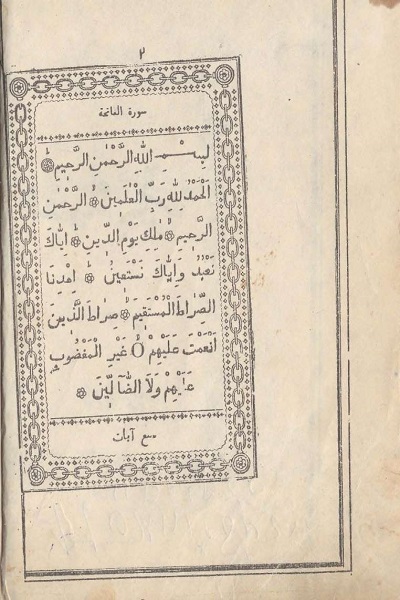 ٢
سورة الفاتحة
بِسْمِ اللهِ الرَّحْمٰنِ الرَّحِيمِ
اَلْحَمْدُ لِلهِ رَبِّ الْعٰلَمِينَ الرَّحْمٰنِ
الرَّحِيمِ مٰلِكِ يَوْمِ الدِّينِ اِيَّاكَ
نَعْبُدُ وَاِيَّاكَ نَسْتَعِينُ اِهْدِنَا
الصِّرَاطَ الْمُسْتَقِيمَ صِرَاطَ الَّذِينَ
اَنْعَمْتَ عَلَيْهِمْ غَيْرِ الْمَغْضُوبِ
عَلَيْهِمْ وَلَا الضَّآلِّينَ
سبع آيات